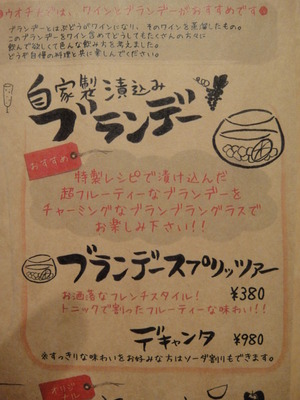 ウオチカは、ワインとブランデーがおすすめです
ブランデーとはぶどうがワインになり、そのワインを蒸溜したもの。
このブランデーをワイン含めてどうしてもたくさんの方々に
飲んで欲しくて色んな飲み方を考えました。
どうぞ自慢の料理と共に楽しんでください。
自家製漬込み
ブランデー
おすすめ
特製レシピで漬け込んだ
超フルーティーなブランデーを
チャーミングなブランブラングラスで
お楽しみ下さい!!
ブランデースプリッツァー
お洒落なフレンチスタイル! ¥380
トニックで割ったフルーティーな味わい!!
デキャンタ ¥980
※すっきりな味わいをお好みな方はソーダ割りもできます。